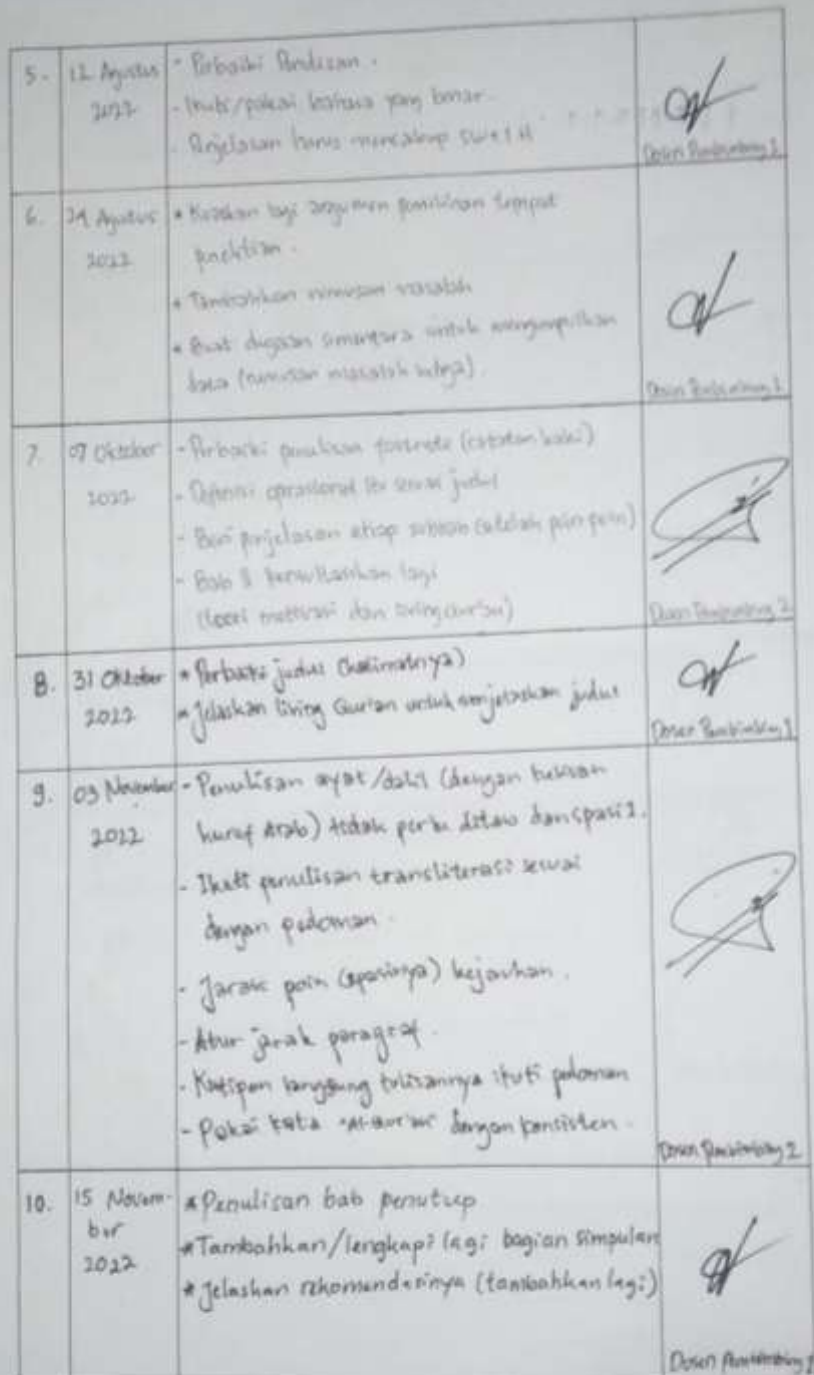 5. 12 Agustus - Perbaiki Penulisan.
2022 - Ikuti/pakai bahasa yang benar.
- Penjelasan harus mencakup 5W+1H
Dosen Pembimbing 1
6. 24 Agustus * Kuatkan lagi argumen pemilihan tempat
2022 penelitian.
* Tambahkan rumusan masalah
* Buat dugaan sementara untuk mengumpulkan
data (rumusan masalah ketiga).
Dosen Pembimbing 1
7. 07 Oktober - Perbaiki penulisan footnote (catatan kaki)
2022 - Definisi oprasional sesuai judul
- Beri penjelasan setiap subbab (setelah poin-poin)
- Bab 2 konsultasikan lagi
(teori motivasi dan living qur'an)
Dosen Pembimbing 2
8. 31 Oktober * Perbaiki judul (kalimatnya)
2022 * Jelaskan living Qur'an untuk menjelaskan judul
Dosen Pembimbing 1
9. 03 November - Penulisan ayat/dalil (dengan tulisan
2022 huruf Arab) tidak perlu ditebalkan spasi 1.
- Ikuti penulisan transliterasi sesuai
dengan pedoman.
- Jarak poin (spasinya) kejauhan.
- Atur jarak paragraf.
- Kutipan langsung tulisannya ikuti pedoman
- Pakai kata "Al-Qur'an" dengan konsisten.
Dosen Pembimbing 2
10. 15 Novem- * Penulisan bab penutup
ber * Tambahkan/lengkapi lagi bagian simpulan
2022 * Jelaskan rekomendasinya (tambahkan lagi)
Dosen Pembimbing 1